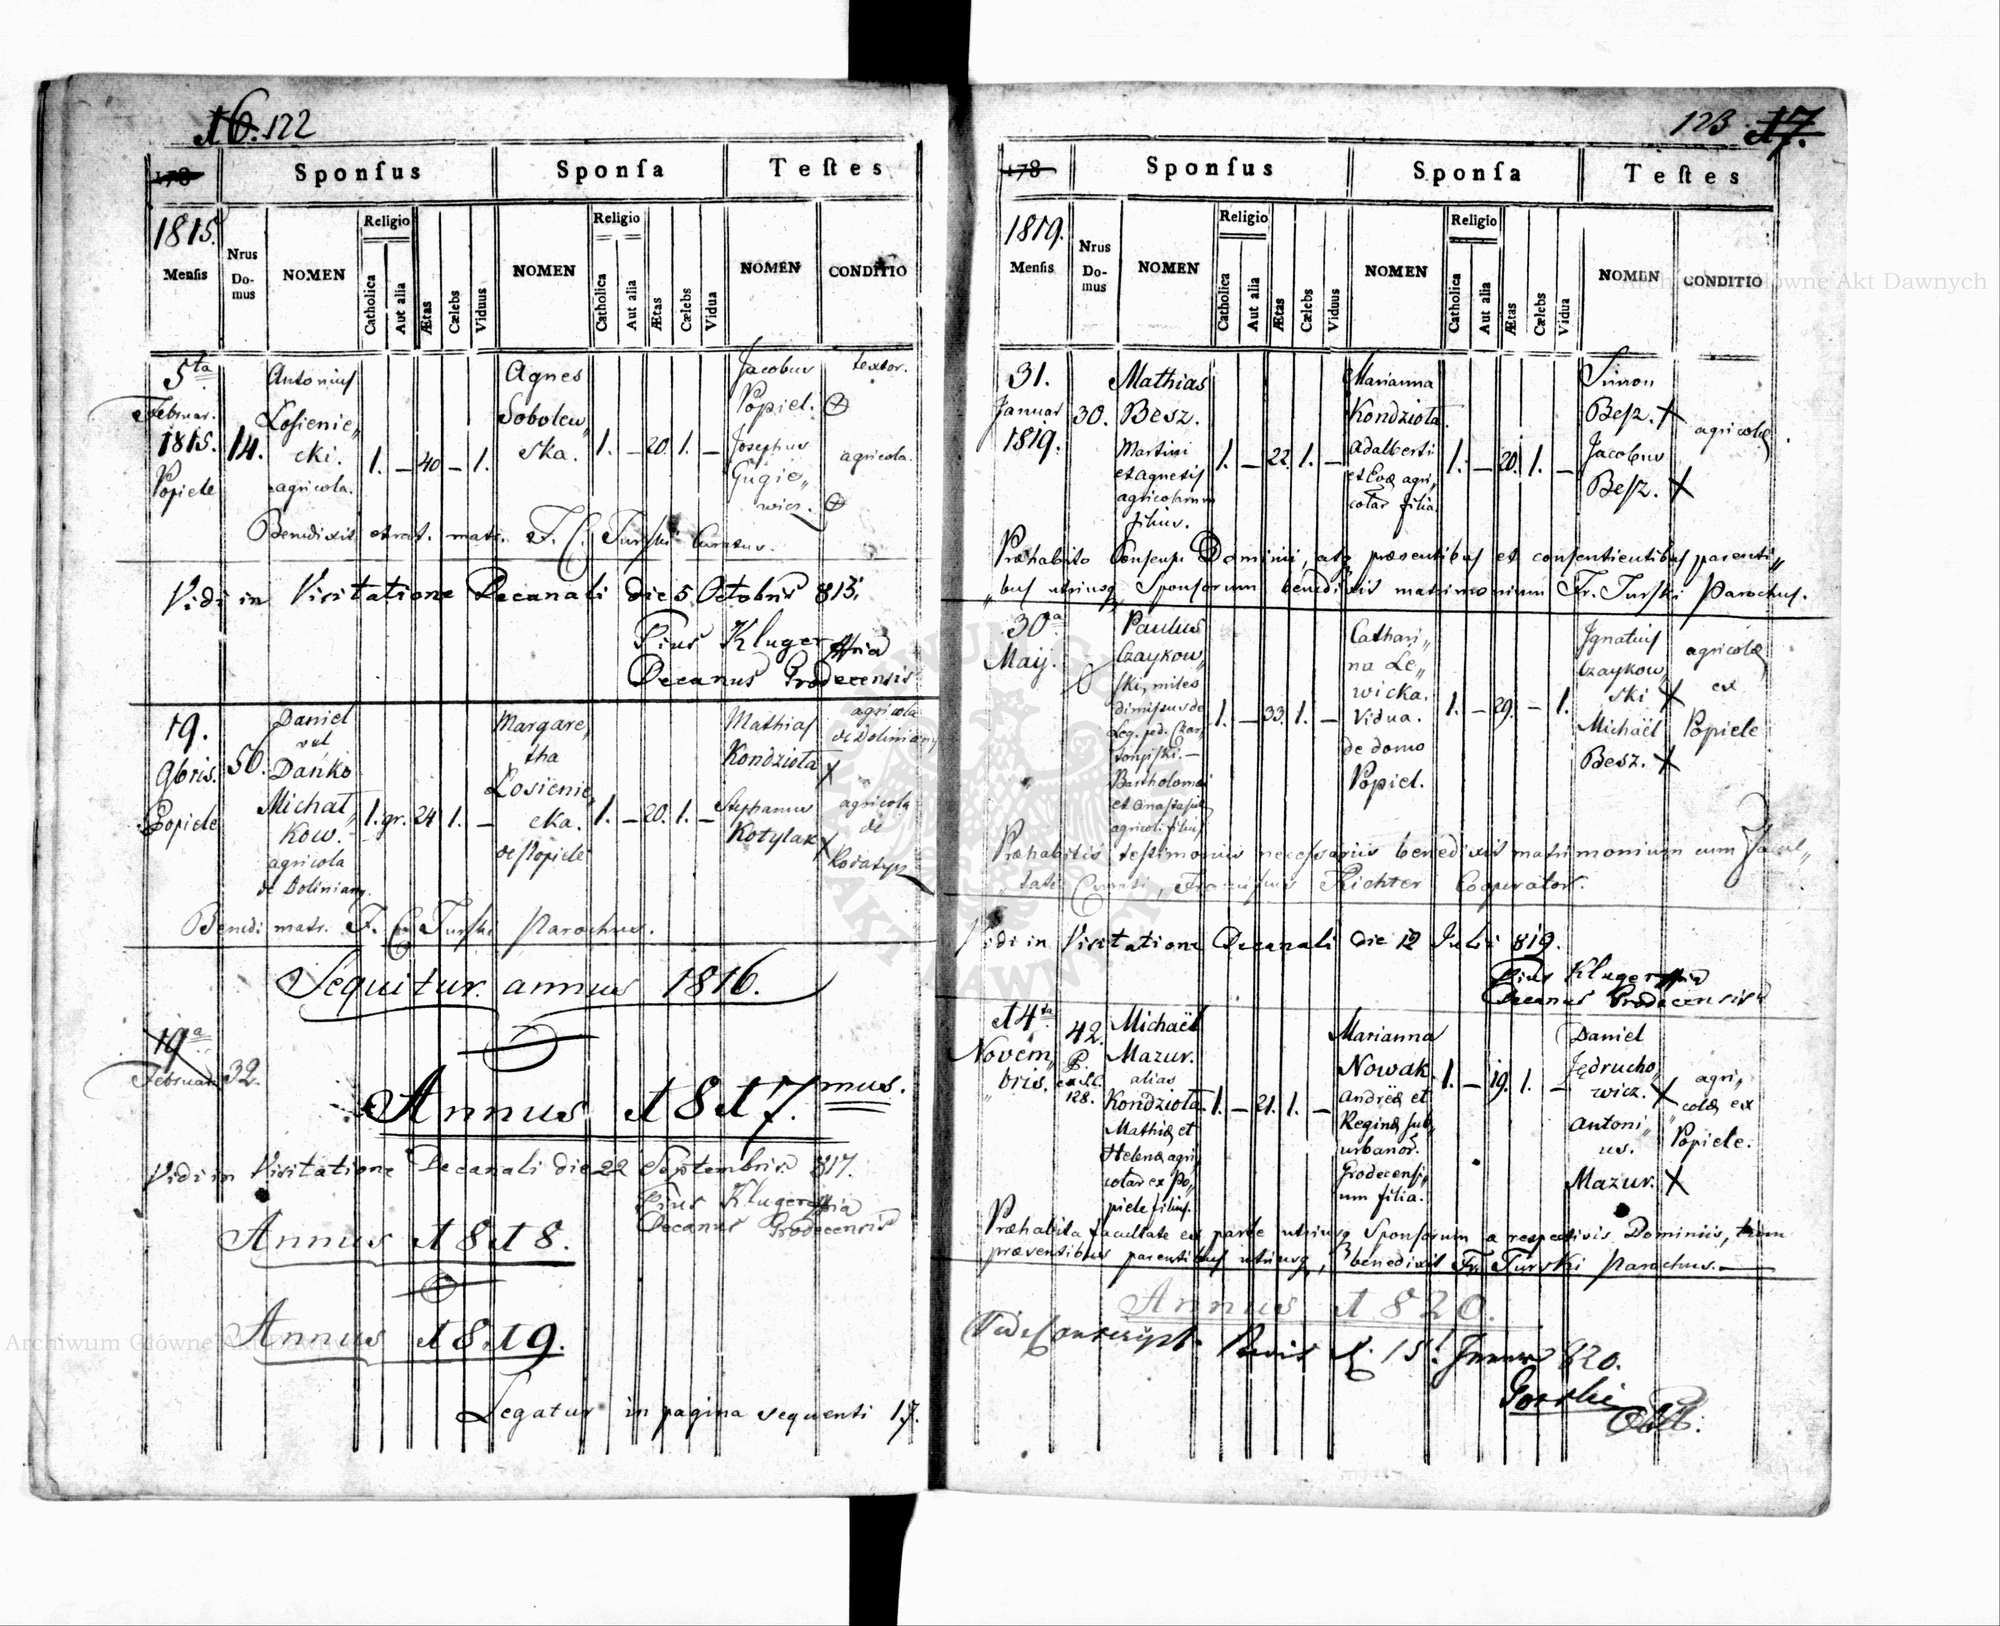 16. 122
178 Sponsus Sponsa Testes
1815.
Mensis
Nrus Do-mus
NOMEN
Religio
Catholica
Aut alia
Ætas
Cælebs
Viduus
NOMEN
Religio
Catholica
Aut alia
Ætas
Cælebs
Vidua
NOMEN
CONDITIO
5ta
Februar.
1815.
Popiele
14.
Antonius
Łosienie„
cki.
agricola.
1. – 40 – 1.
Agnes
Sobolew„
ska.
1. – 20. 1. –
Jacobus
Popiel.
Josephus
Gugie„
wicz.
textor.
agricola.
Benedixit matr. F. C. Turski Curatus.
Vidi in Visitatione Decanali die 5 Octobris 815.
Pius Kluger
Decanus Grodecensis
19.
9bris.
Popiele
56.
Daniel
vel
Dańko
Michał„
kow.
agricola
de Doliniany.
1. gr. 24 1. –
Margare„
tha
Łosienie„
cka.
de Popiele
1. – 20. 1. –
Mathias
Kondzioła
Stephanus
Kotylak
agricola
de Doliniany
agricola
de
Rodatyn
Benedi matr. F. C. Turski Parochus.
Sequitur annus 1816.
19a
Februarii 32.
Annus 1817.mus.
Vidi in Visitatione Decanali die 22 Septembris 817.
Pius Kluger
Decanus Grodecensis
Annus 1818.
Annus 1819.
Legatur in pagina sequenti 17.
123 17.
178 Sponsus Sponsa Testes
1819.
Mensis
Nrus Do-mus
NOMEN
Religio
Catholica
Aut alia
Ætas
Cælebs
Viduus
NOMEN
Religio
Catholica
Aut alia
Ætas
Cælebs
Vidua
NOMEN
CONDITIO
31.
Januar
1819.
30.
Mathias
Besz.
Martini
et Agnetis
agricolarum
filius.
1. – 22. 1. –
Marianna
Kondzioła
Adalberti
et Evæ agri„
colar filia.
1. – 20. 1. –
Simon
Besz.
Jacobus
Besz.
agricolæ
Præhabito Consensu Dominii, atq præsentibus et consentientibus parenti„
„bus utriusq Sponsorum benedixit matrimonium Fr. Turski Parochus.
30a
Maij.
Paulus
Czaykow„
ski, miles
dimissus de
Leg. ped.
Bartholomæi
et Anastasiæ
agricol. filius
1. – 33. 1. –
Cathari„
na Le„
wicka.
Vidua.
de domo
Popiel.
1. – 29. – 1.
Ignatius
Czaykow„
ski
Michaël
Besz.
agricolæ
ex
Popiele
Præhabitis testimoniis necessariis benedixit matrimonium cum facul„
tate Curati, Franciscus Richter Cooperator.
Vidi in Visitatione Decanali die 12 Julii 819.
Pius Kluger
Decanus Grodecensis
14ta
Novem„
bris.
42.
128.
Michaël
Mazur.
alias
Kondzioła.
Mathiæ et
Helenæ agri„
colar ex Po„
piele filius.
1. – 21. 1. –
Marianna
Nowak
Andreæ et
Reginæ sub„
urbanor.
Grodecensi„
um filia.
1. – 19. 1. –
Daniel
Jędrucho„
wicz.
Antoni„
us.
Mazur.
agri„
colæ ex
Popiele.
Præhabita facultate ex parte utriusq Sponsorum a respectivis Dominiis, tum
præsentibus parentibus utriusq, benedixit Fr. Turski Parochus.
Annus 1820.
15t Januar 820.
Gorski
Archiwum Główne Akt Dawnych
Archiwum Główne Akt Dawnych